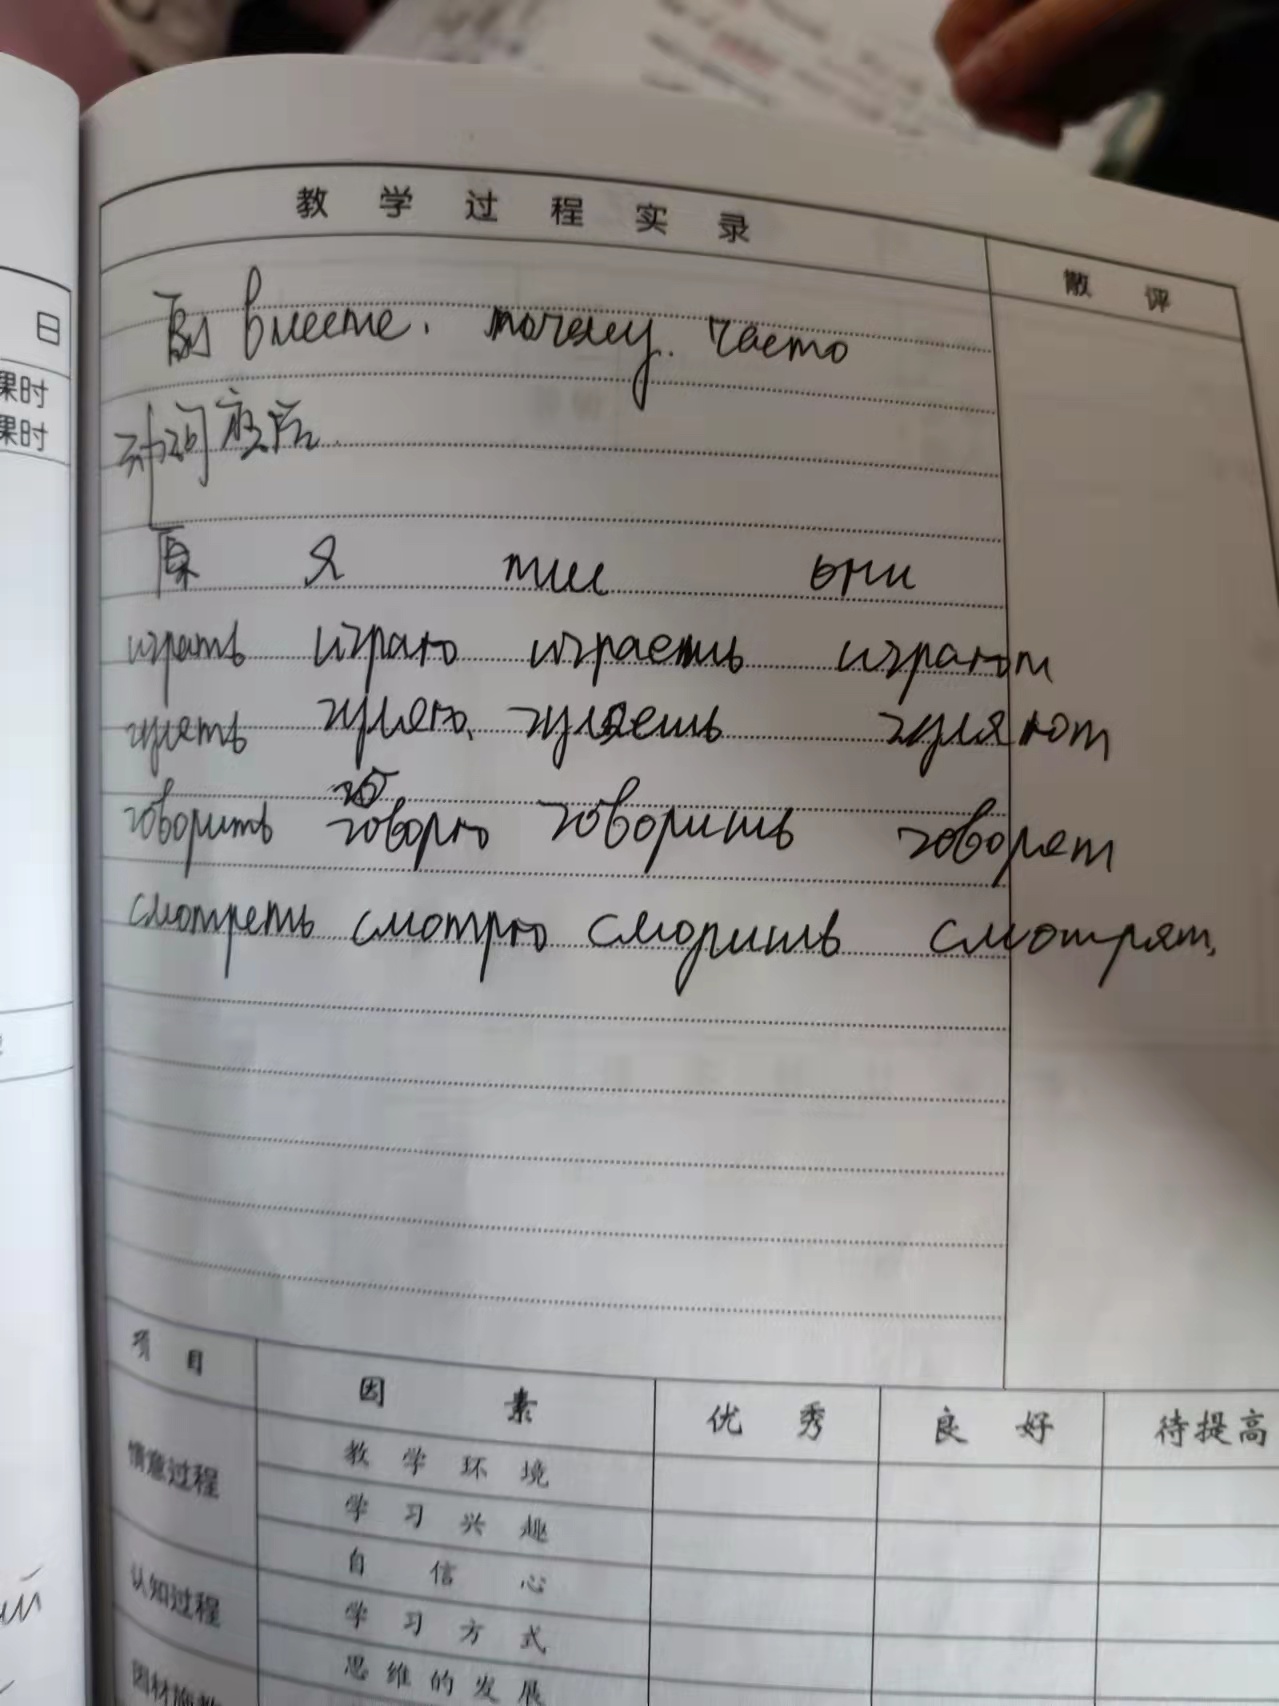 教 学 过 程 实 录
散 评
日
课时
课时
вместе. почему. часто
动词变位
原 я ты они
играть играю играешь играют
гулять гуляю, гуляешь гуляют
говорить говорю говоришь говорят
смотреть смотрю сморишь смотрят,
项 目 因 素 优 秀 良 好 待提高
情意过程 教 学 环 境
学 习 兴 趣
自 信 心
认知过程 学 习 方 式
思 维 的 发 展